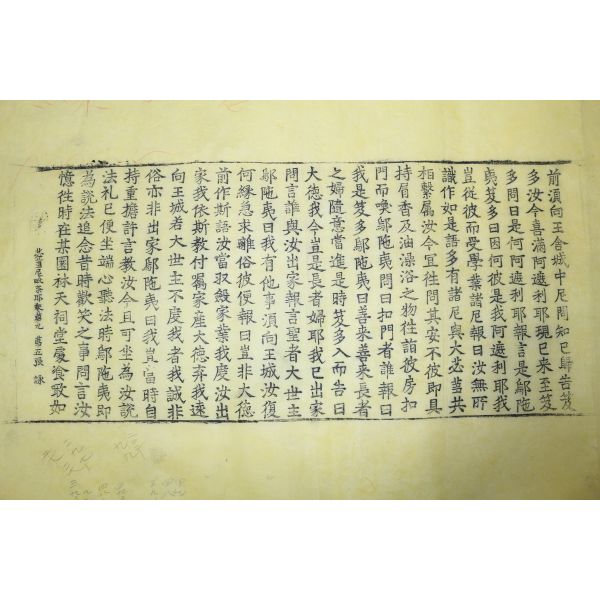 前須向王舍城中尼聞知已歸告笈
多汝今喜滿阿遮利耶現已来至笈
多問曰是何阿遮利耶報言是鄔陁
夷笈多曰因何彼是我阿遮利耶我
豈從彼而受學業諸尼報曰汝無所
識作如是語多有諸尼與大苾芻共
相繫屬汝今宜徃問其安不彼即具
持眉香及油澡浴之物徃詣彼房扣
門而喚鄔陁夷問曰扣門者誰報曰
我是笈多鄔陁夷曰善来善来長者
之婦隨意當進是時笈多入而告曰
大德我今豈是長者婦耶我已出家
問言誰與汝出家報言聖者大世主
鄔陁夷曰我有他事須向王城汝復
何緣急求離俗彼便報曰豈非大德
前作斯語汝當取錢家業我度汝出
家我依斯教付囑家産大德弃我速
向王城若大世主不度我者我誠非
俗亦非出家鄔陁夷曰我豈當時自
持重擔許言教汝今且可坐為汝說
法礼已便坐端心聽法時鄔陁夷即
為說法追念昔時歡笑之事問言汝
憶徃時在某園林天祠堂處飡敢如